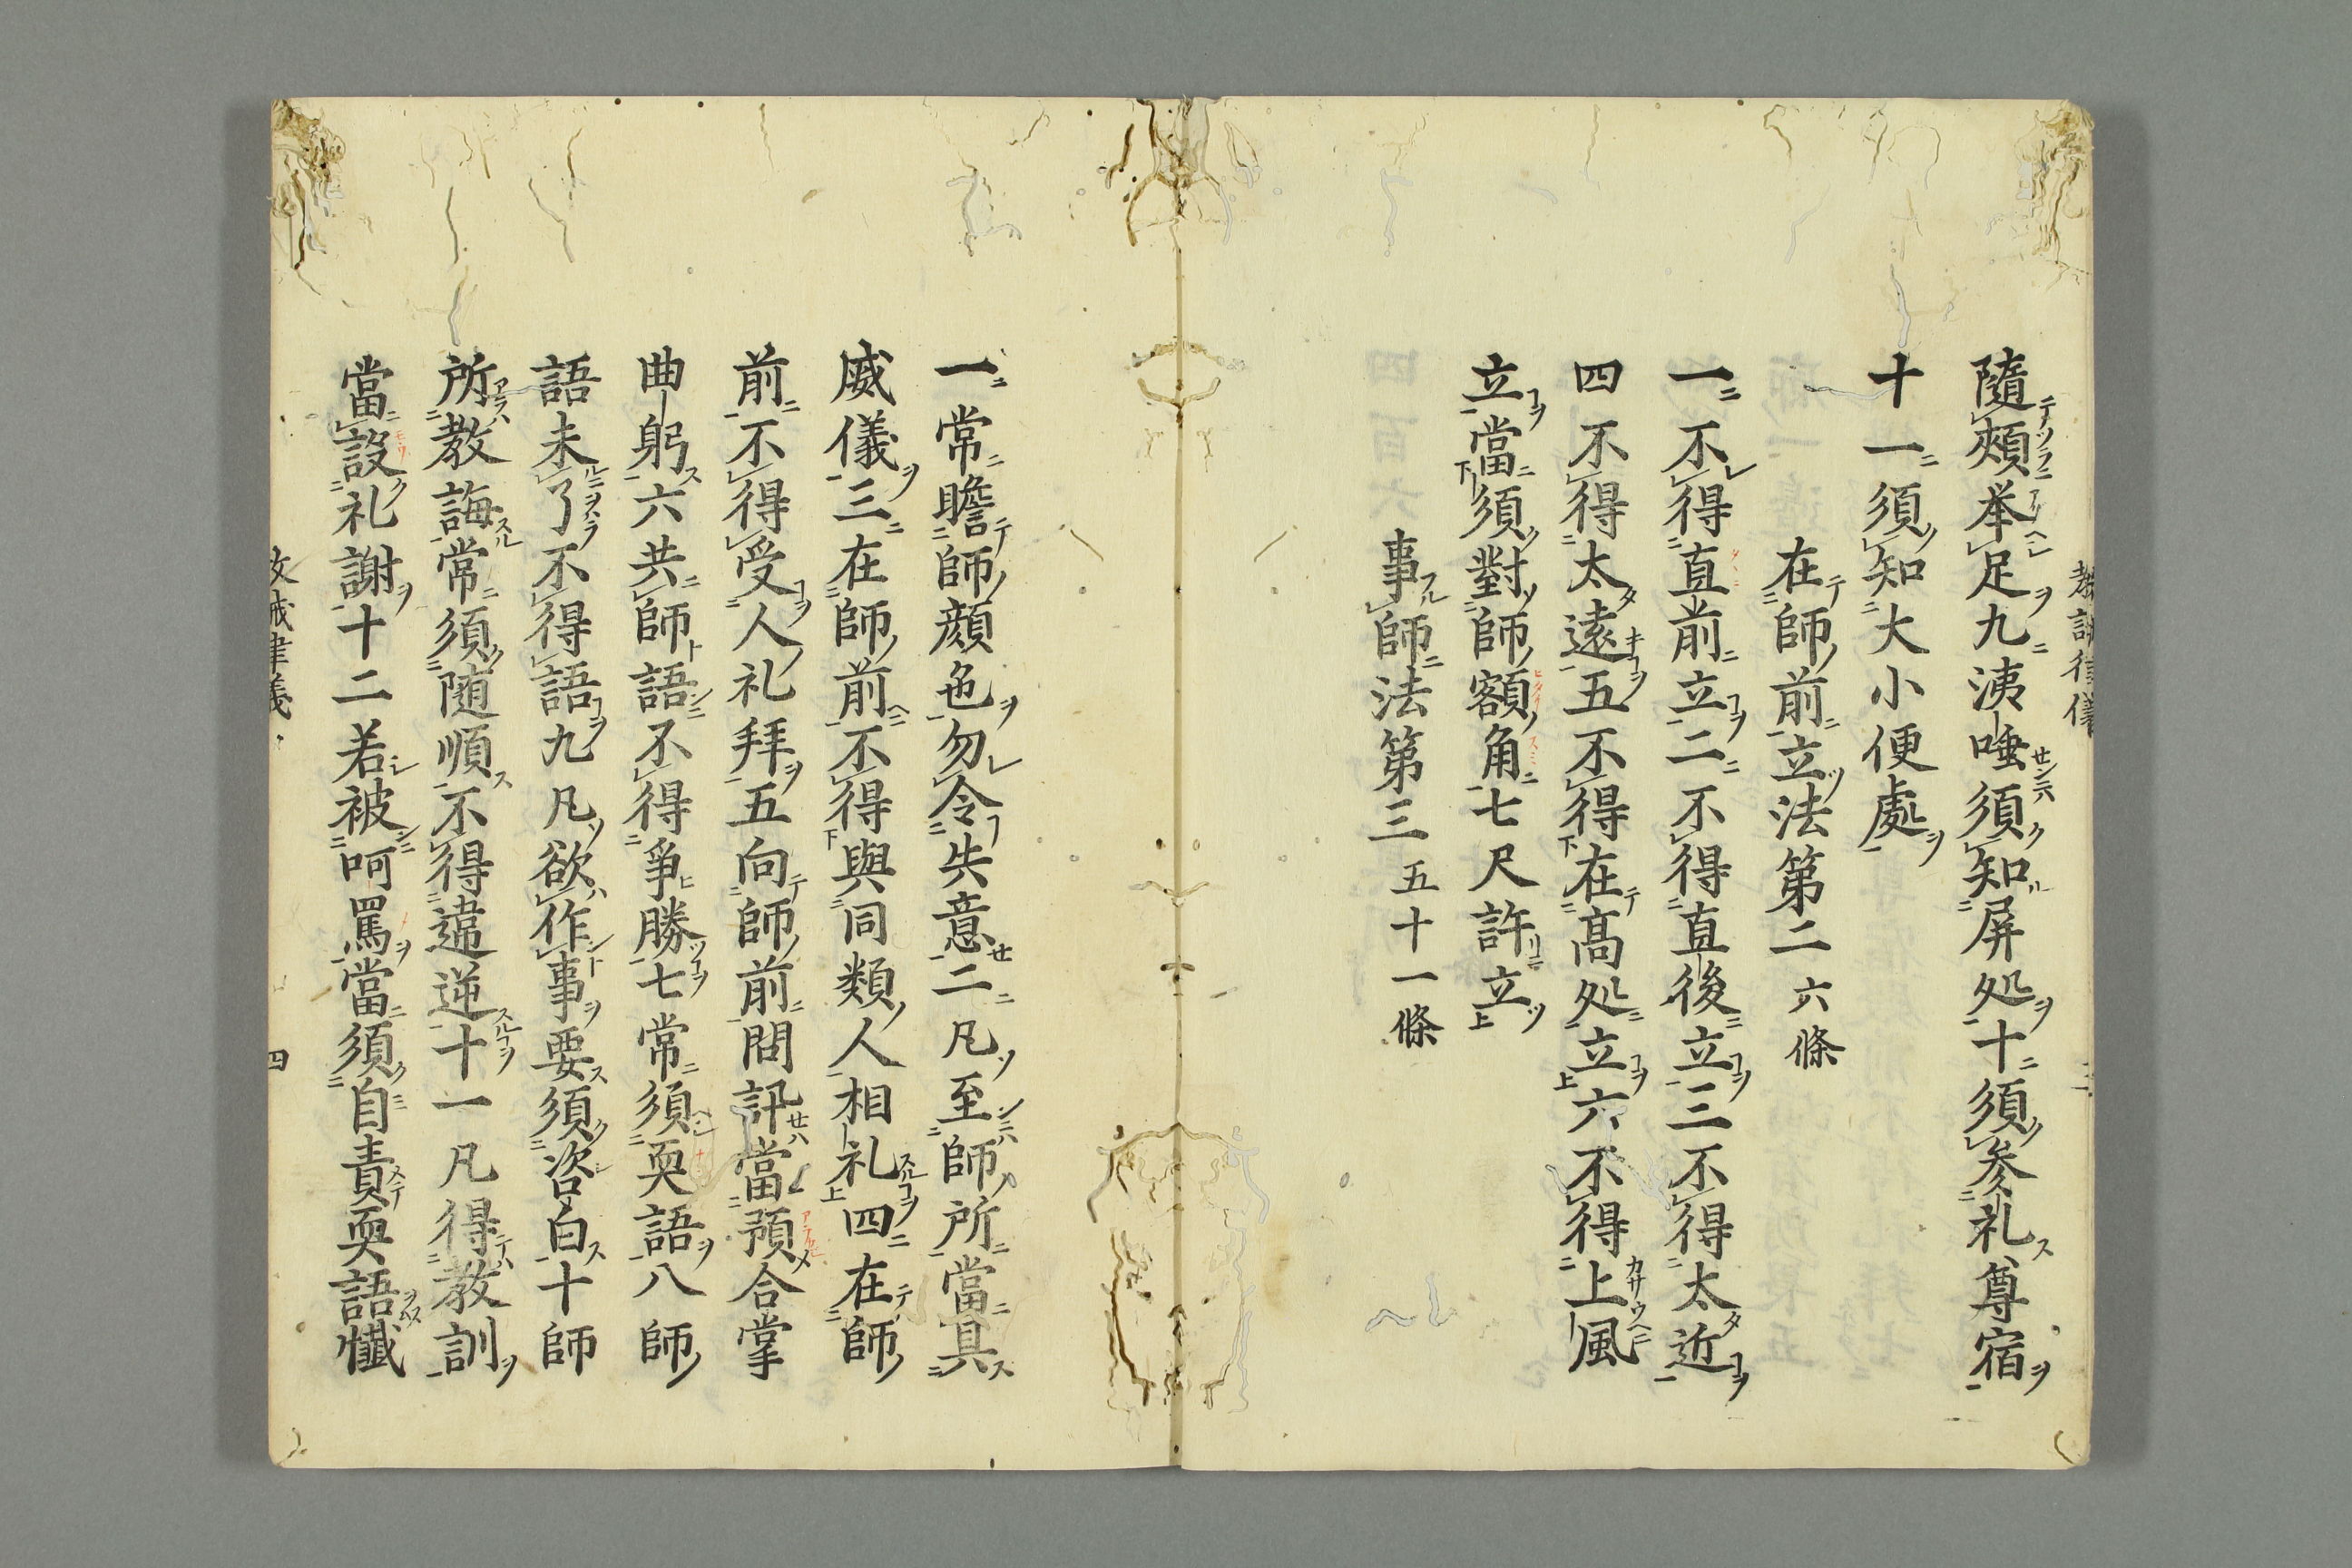 隨頰挙足九洟唾須知屏処十須参礼尊宿
十一須知大小便處
在師前立法第二 六條
一不得直前立二不得直後立三不得太近
四不得太遠五不得在髙処立六不得上風
立當須對師額角七尺許立
事師法第三 五十一條
一常瞻師顔色勿令失意二凡至師所當具
威儀三在師前不得與同類人相礼四在師
前不得受人礼拜五向師前問訊當預合掌
曲躬六共師語不得爭勝七常須耎語八師
語未了不得語九凡欲作事要須咨白十師
所教誨常須随順不得違逆十一凡得教訓
當設礼謝十二若被呵罵當須自責耎語懺
四